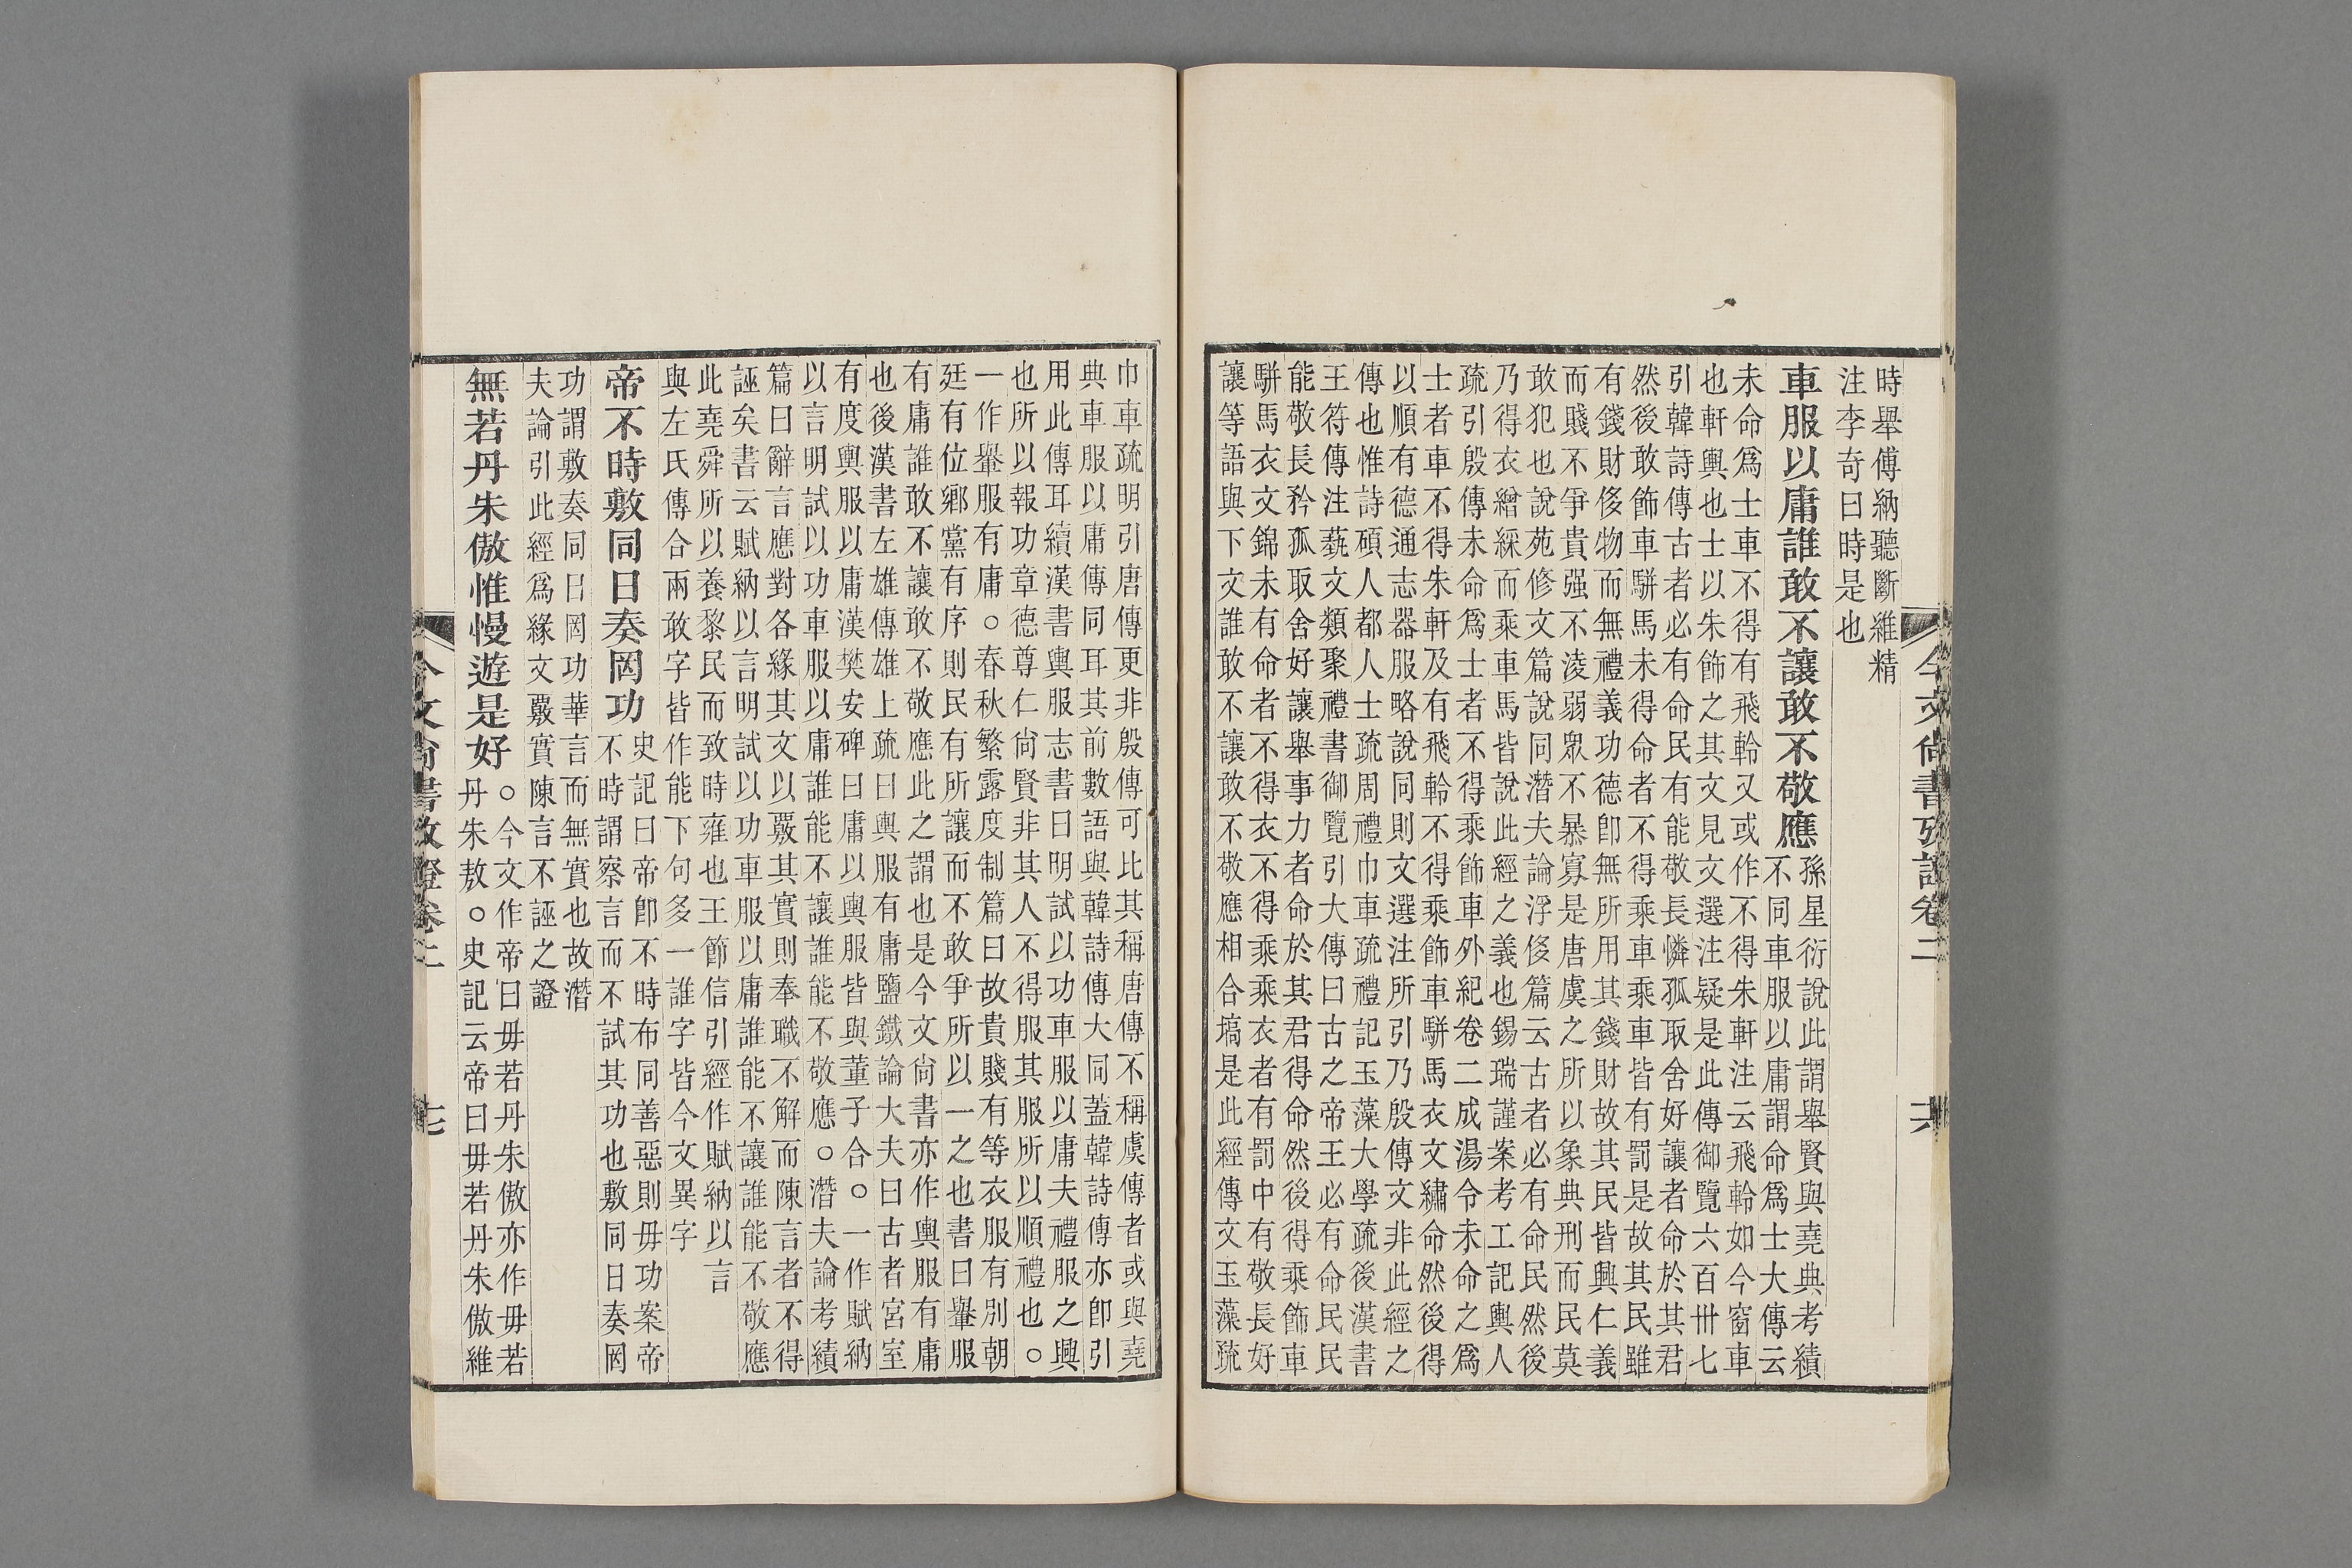 時舉傅納聽斷維精
注李奇曰時是也
車服以庸誰敢不讓敢不敬應
孫星衍說此謂舉賢與堯典考績
不同車服以庸謂命爲士大傳云
未命爲士車不得有飛軨又或作不得朱軒注云飛軨如今窗車
也軒輿也士以朱飾之其文見文選注疑是此傳御覽六百卅七
引韓詩傳古者必有命民有能敬長憐孤取舍好讓者命於其君
然後敢飾車駢馬未得命者不得乘車乘車皆有罰是故其民雖
有錢財侈物而無禮義功德卽無所用其錢財故其民皆興仁義
而賤不爭貴强不淩弱眾不暴寡是唐虞之所以象典刑而民莫
敢犯也說苑修文篇說同潛夫論浮侈篇云古者必有命民然後
乃得衣繒綵而乘車馬皆說此經之義也錫瑞謹案考工記輿人
疏引殷傳未命爲士者不得乘飾車外紀卷二成湯令未命之爲
士者車不得朱軒及有飛軨不得乘飾車駢馬衣文繡命然後得
以順有德通志器服略說同則文選注所引乃殷傳文非此經之
傳也惟詩碩人都人士疏周禮巾車疏禮記玉藻大學疏後漢書
王符傳注蓺文類聚禮書御覽引大傳曰古之帝王必有命民民
能敬長矜孤取舍好讓舉事力者命於其君得命然後得乘飾車
駢馬衣文錦未有命者不得衣不得乘乘衣者有罰中有敬長好
讓等語與下文誰敢不讓敢不敬應相合塙是此經傳文玉藻疏
今文尙書攷證卷二
六
巾車疏明引唐傳更非殷傳可比其稱唐傳不稱虞傳者或與堯
典車服以庸傳同耳其前數語與韓詩傳大同蓋韓詩傳亦卽引
用此傳耳續漢書輿服志書曰明試以功車服以庸夫禮服之興
也所以報功章德尊仁尙賢非其人不得服其服所以順禮也○
一作轝服有庸○春秋繁露度制篇曰故貴賤有等衣服有別朝
廷有位鄉黨有序則民有所讓而不敢爭所以一之也書曰轝服
有庸誰敢不讓敢不敬應此之謂也是今文尙書亦作輿服有庸
也後漢書左雄傳雄上疏曰輿服有庸鹽鐵論大夫曰古者宮室
有度輿服以庸漢樊安碑曰庸以輿服皆與董子合○一作賦納
以言明試以功車服以庸誰能不讓誰能不敬應○潛夫論考績
篇曰辭言應對各緣其文以覈其實則奉職不解而陳言者不得
誣矣書云賦納以言明試以功車服以庸誰能不讓誰能不敬應
此堯舜所以養黎民而致時雍也王節信引經作賦納以言
與左氏傳合兩敢字皆作能下句多一誰字皆今文異字
帝不時敷同日奏罔功
史記曰帝卽不時布同善惡則毋功案帝
不時謂察言而不試其功也敷同日奏罔
功謂敷奏同日罔功華言而無實也故潛
夫論引此經爲緣文覈實陳言不誣之證
無若丹朱傲惟慢遊是好
○今文作帝曰毋若丹朱傲亦作毋若
丹朱敖○史記云帝曰毋若丹朱傲維
今文尙書攷證卷二
七